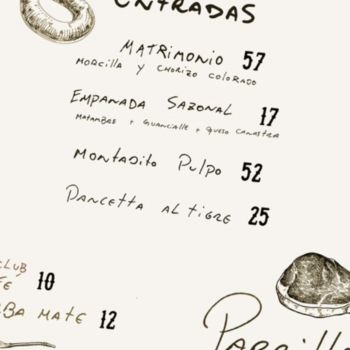 ENTRADAS
MATRIMONIO 57
MORCILLA Y CHORIZO COLORADO
EMPANADA SAZONAL 17
MATAMBRE + GUANCIALLE + QUESO CANASTRA
MONTADITO PULPO 52
PANCETTA AL TIGRE 25
CLUB
10
MATE 12